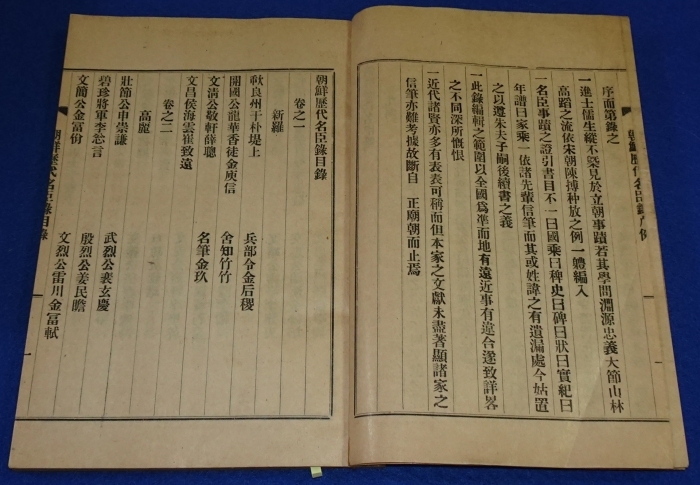 序而第錄之
一進士儒生縱不槩見於立朝事蹟若其學問淵源忠義大節山林
高蹈之流依宋朝陳摶种放之例一軆編入
一名臣事蹟之證引書目不一曰國乘曰稗史曰碑曰狀曰實紀曰
年譜曰家乘一依諸先輩信筆而其或姓諱之有遺漏處今姑置
之以遵朱夫子嗣後續書之義
一此錄編輯之範圍以全國爲準而地有遠近事有違合遂致詳畧
之不同深所慨恨
一近代諸賢亦多有表表可稱而但本家之文獻未盡著顯諸家之
信筆亦難考據故斷自 正廟朝而止焉
朝鮮歷代名臣錄目錄
卷之一
新羅
歃良州干朴堤上 兵部令金后稷
開國公龍華香徒金庾信 舍知竹竹
文淸公敬軒薛聰 名筆金玖
文昌侯海雲崔致遠
卷之二
高麗
壯節公申崇謙 武烈公裴玄慶
碧珍將軍李悤言 殷烈公姜民瞻
文簡公金富佾 文烈公雷川金富軾
朝鮮歷代名臣錄目錄 一